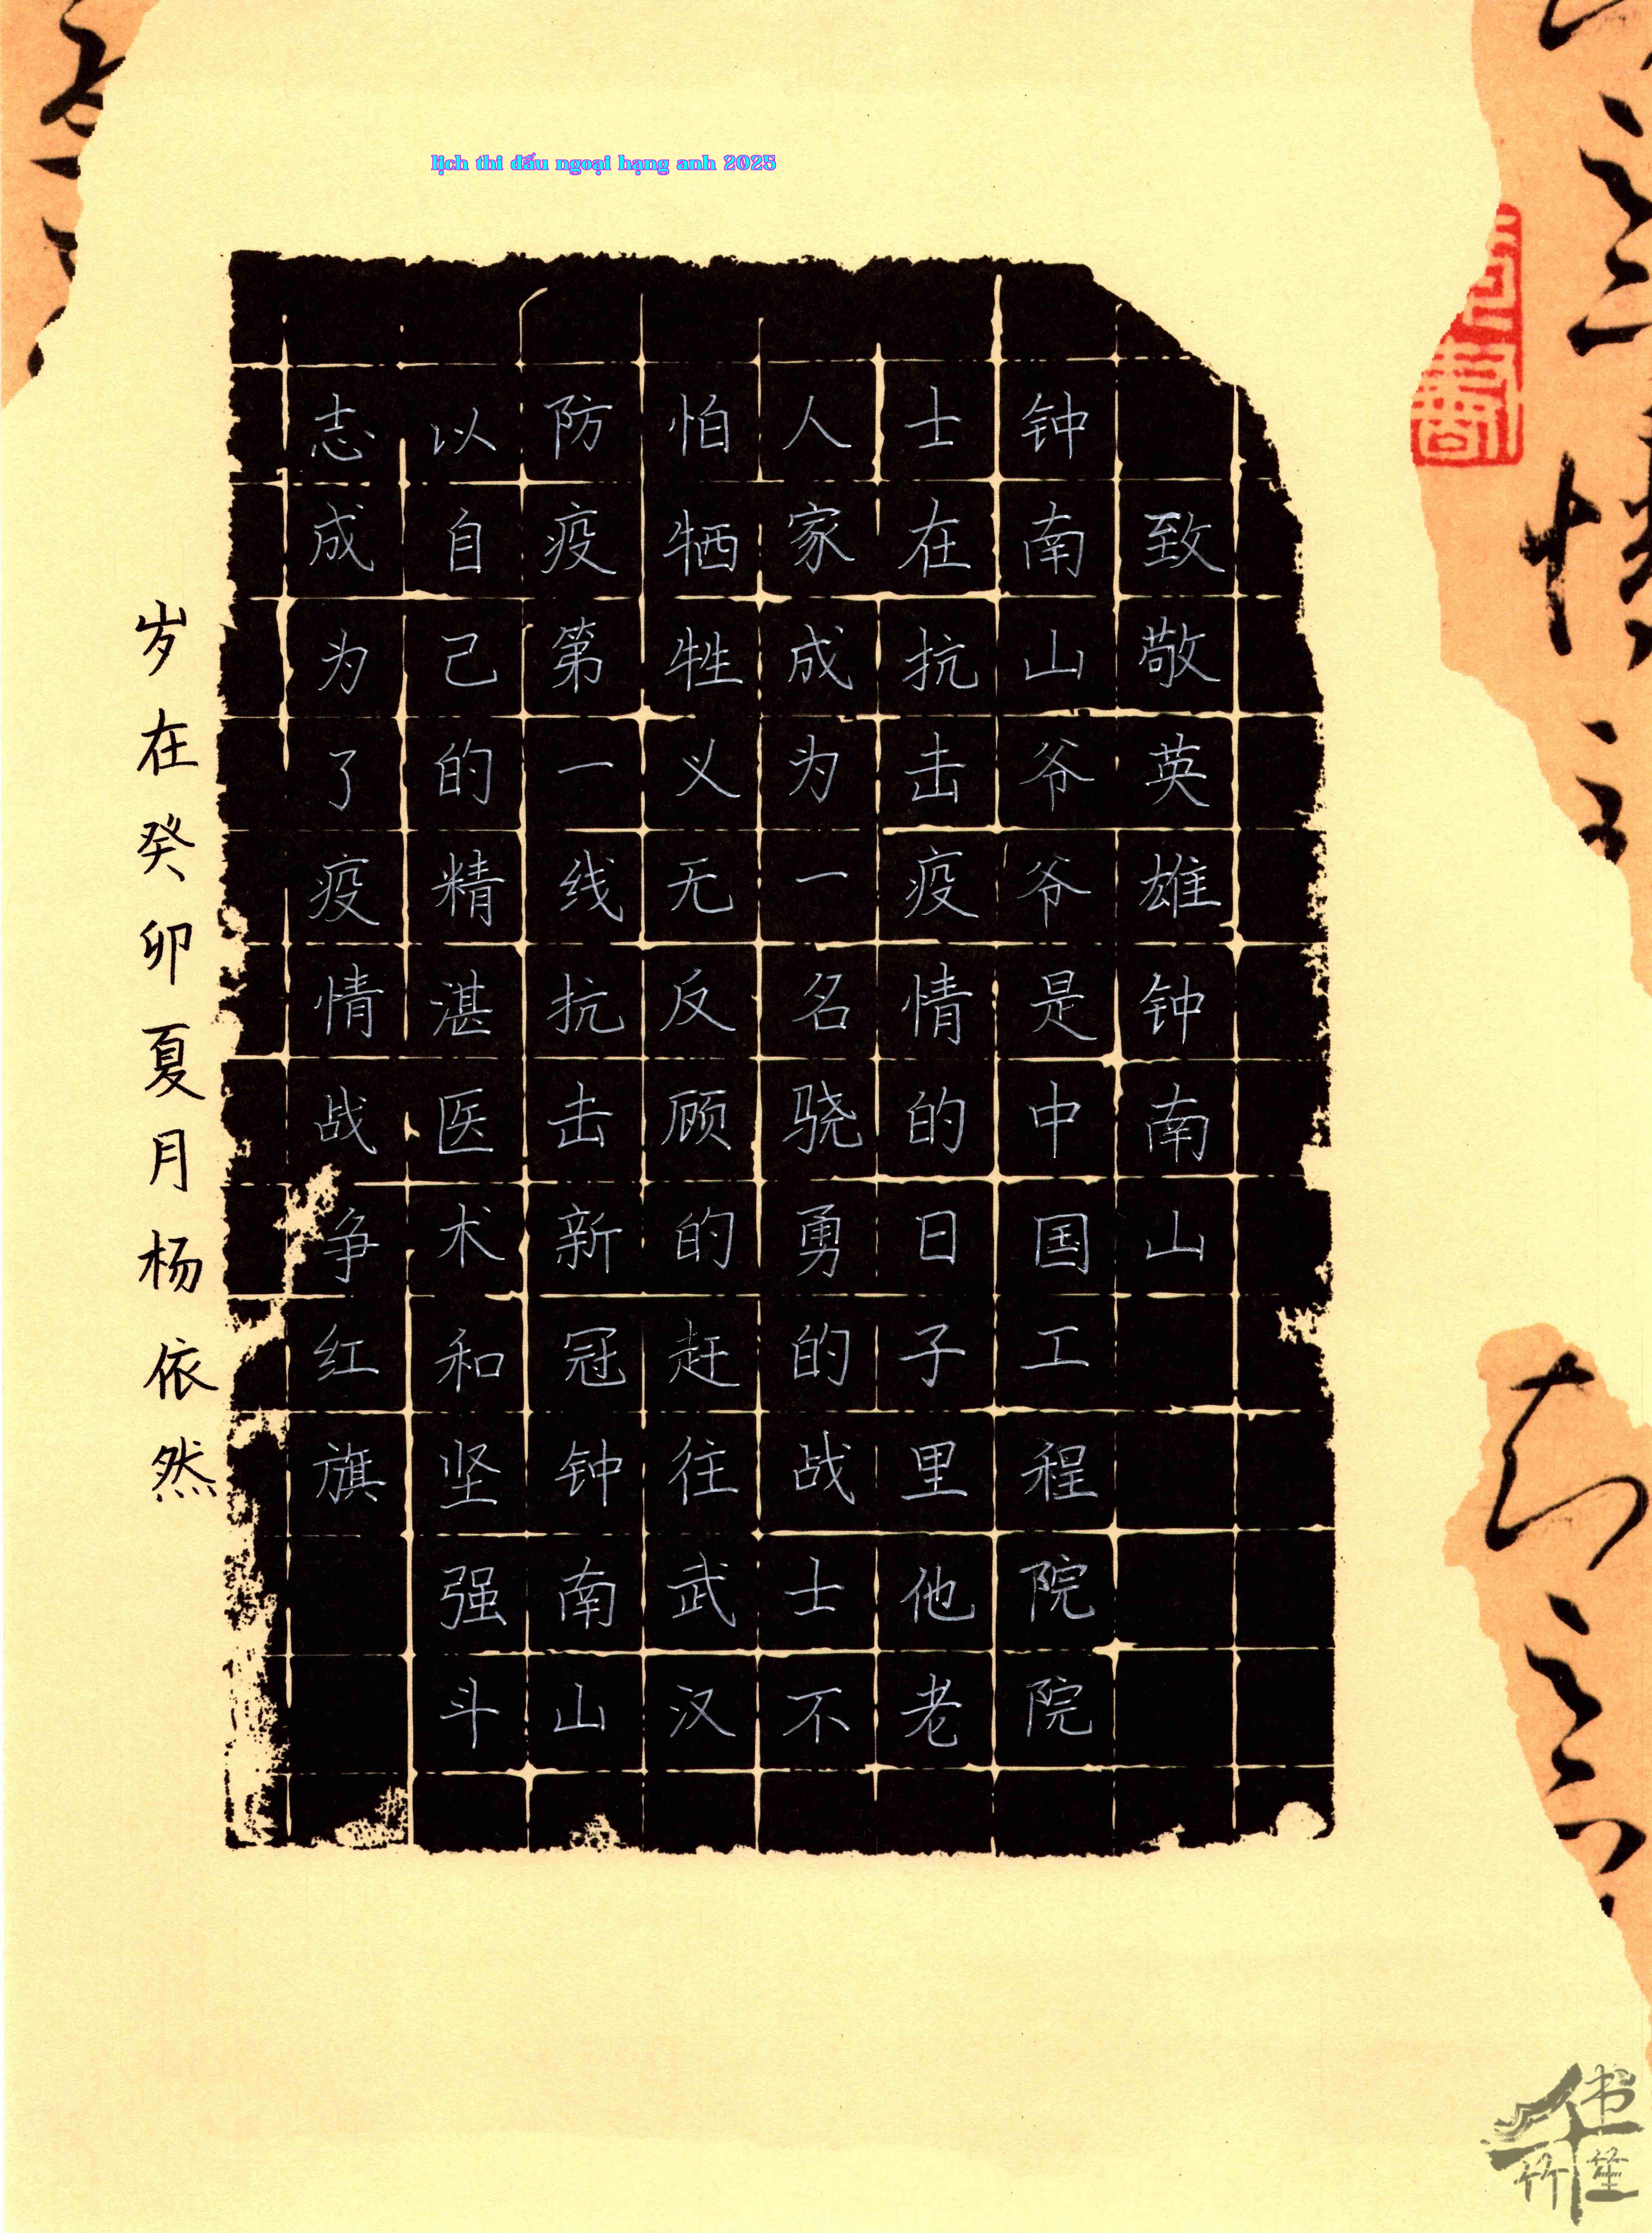 lịch thi đấu ngoại hạng anh 2025
致敬英雄钟南山
钟南山爷爷是中国工程院院
士在抗击疫情的日子里他老
人家成为一名骁勇的战士不
怕牺牲义无反顾的赶往武汉
防疫第一线抗击新冠钟南山
以自己的精湛医术和坚强斗
志成为了疫情战争红旗
岁在癸卯夏月杨依然